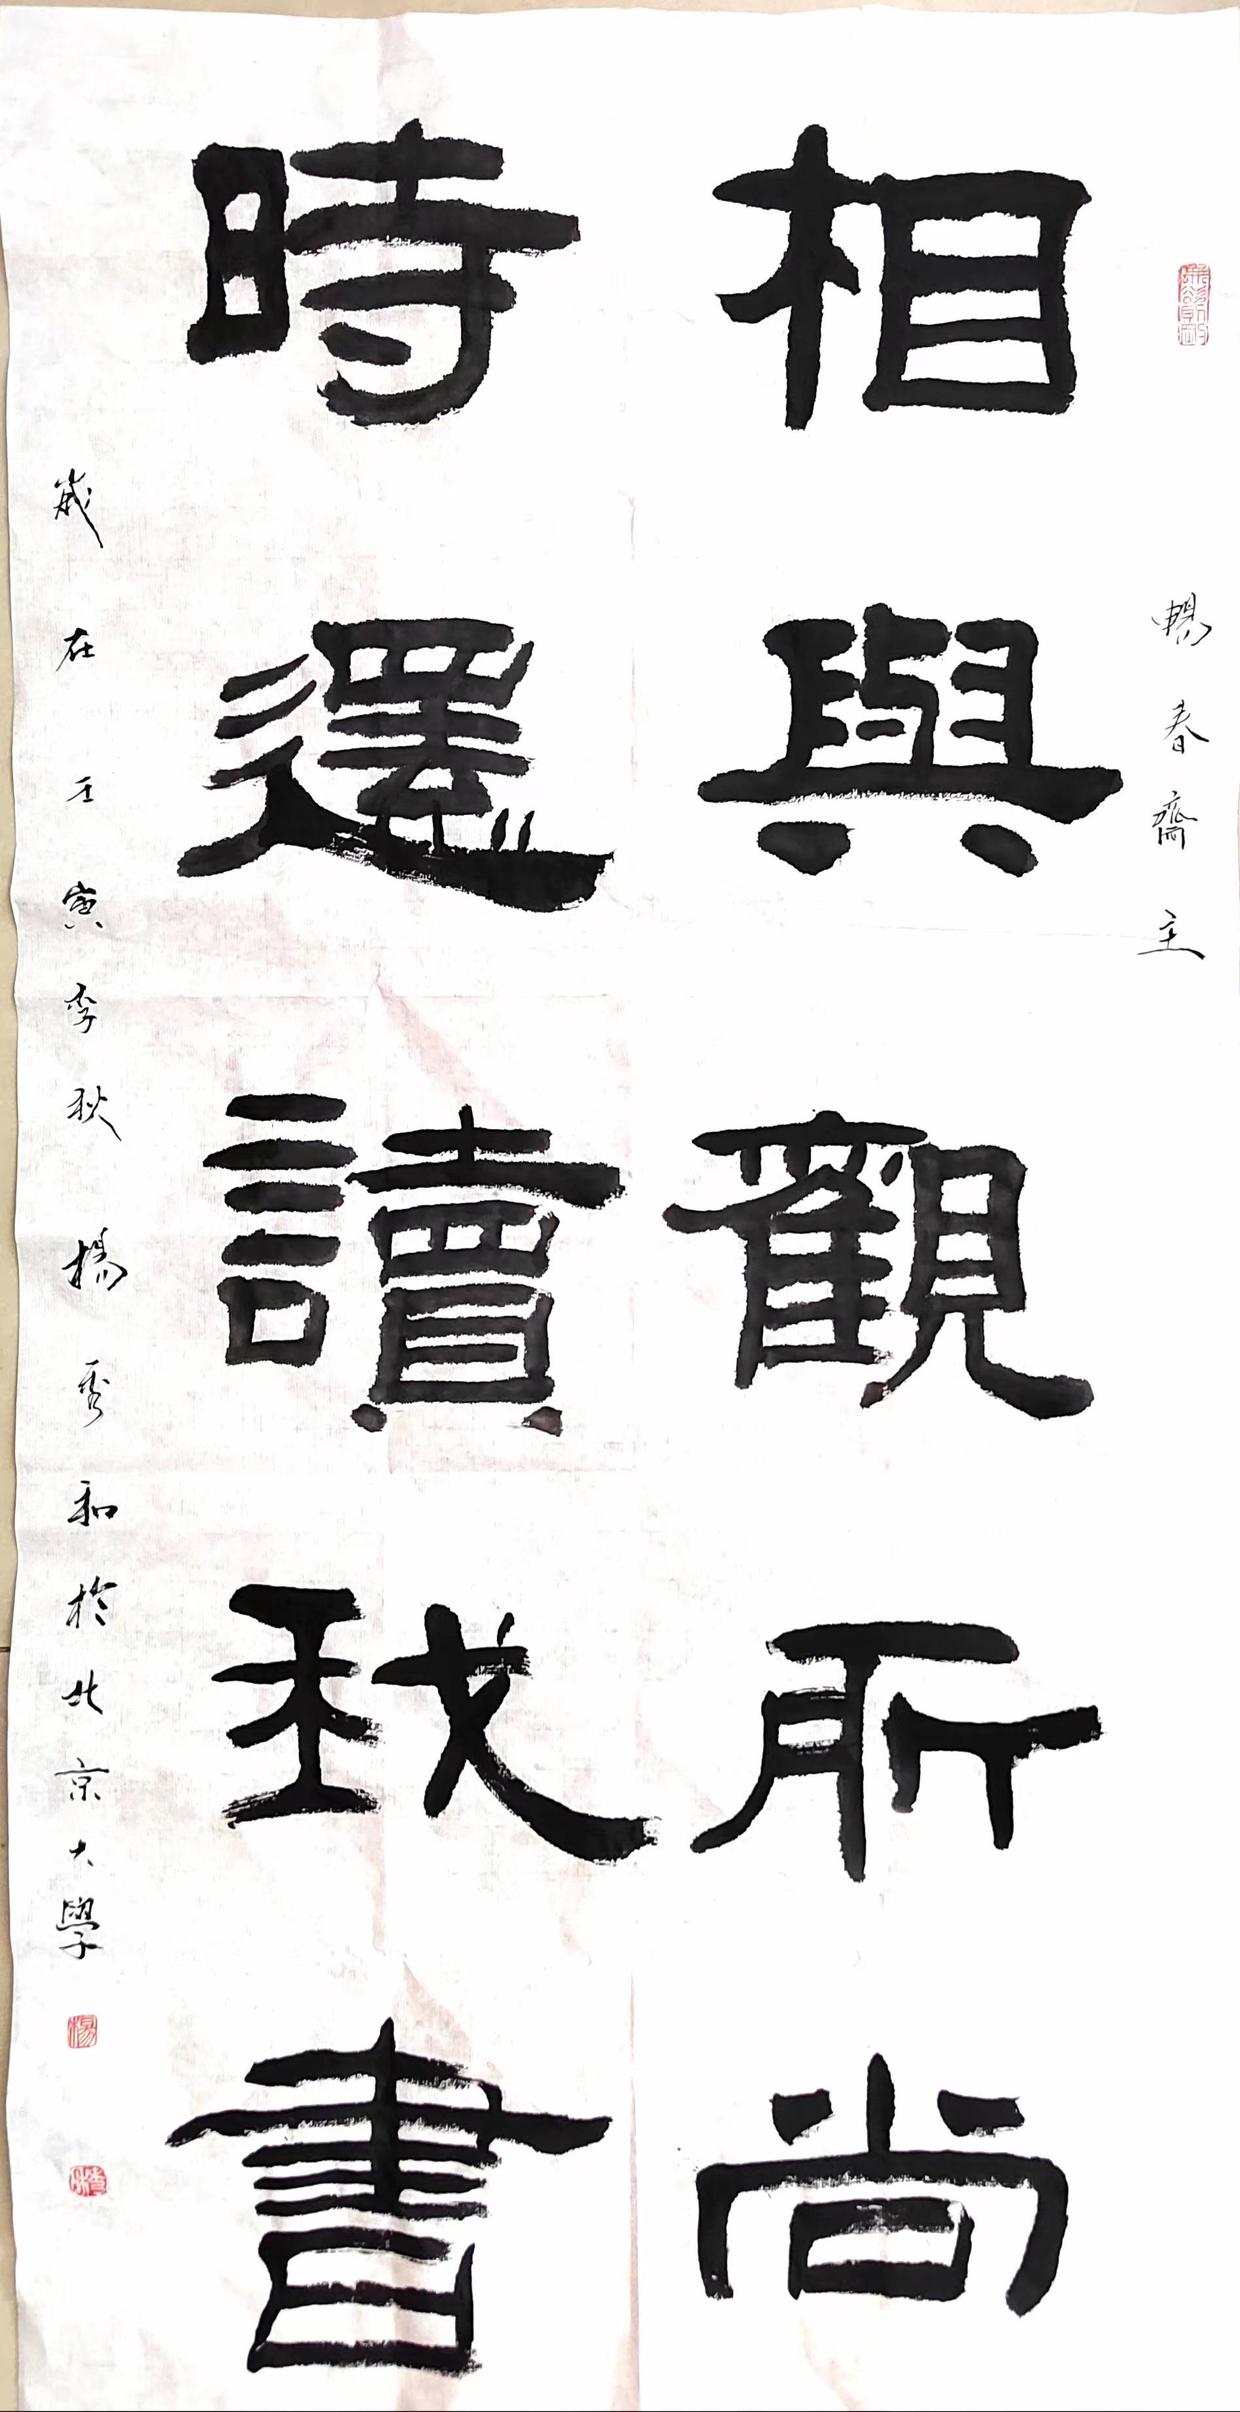 暢春齋主
相與觀所尚
時還讀我書
歲在壬寅季秋楊秀和於北京大學